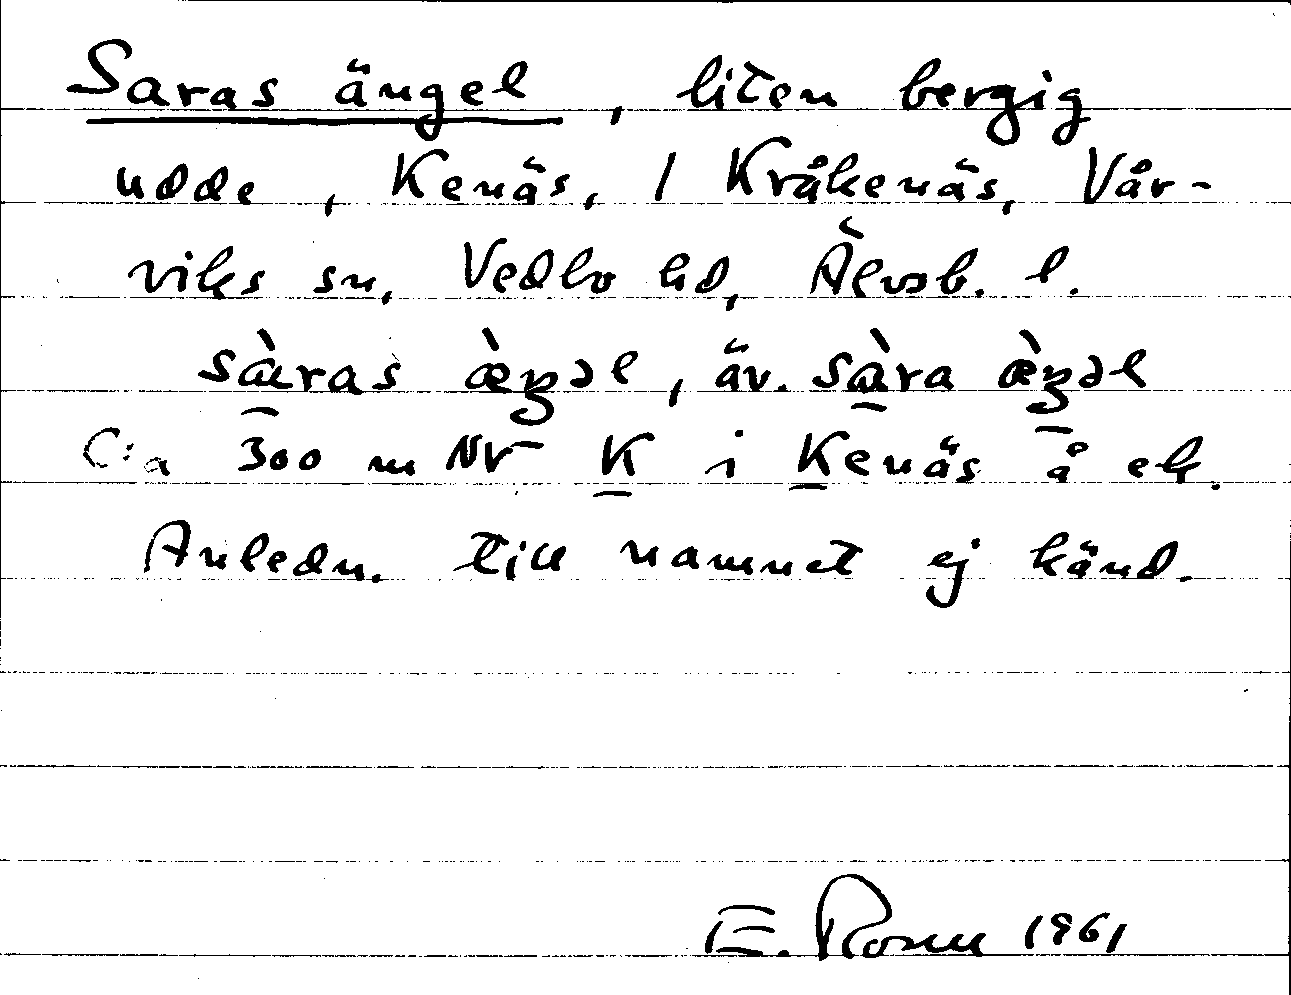 Saras ängel, liten bergig
udde, Kenäs, 1 Kråkenäs, Vår-
viks sn, Vedbo hd, Älvsb. l.
sàras æ̀ŋəl, äv. sàra æ̀ŋəl
C:a 300 m NV K i Kenäs å ek.
Anledn. till namnet ej känd.
E. Rosen 1961